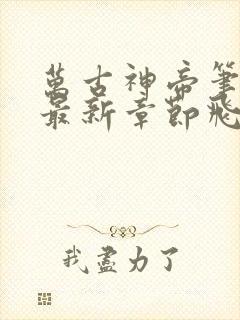 萬古神帝筆
最新章節飛
我盡力了